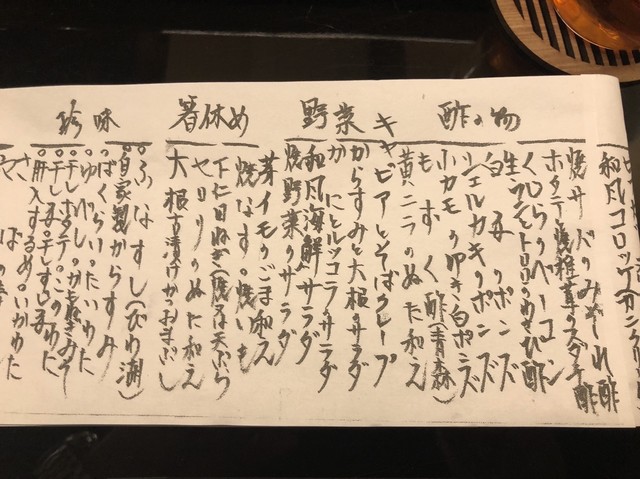 和風コロッケ
酢の物
焼サバのみぞれ酢
ホタテと椎茸のスダチ酢
くじらのベーコン
白子のポンズ
シェルカキのポンズ
小カモの叩き白ポンズ
もずく酢(青森)
黄ニラのぬた和え
野菜
キャビアとそばクレープ
からすみと大根のサラダ
かにとルッコラのサラダ
和風海鮮サラダ
焼野菜のサラダ
箸休め
芽イモのごま和え
焼なす。焼いも
下仁田ねぎ(焼又は天ぷら
セロリのぬた和え
大根古漬けかつおまぶし
珍味
ふなずし(びわ湖)
自家製からすみ
ばくらい。たいわた
ゆべし。
干しホタテ。このわた
干し子。干しすじ子
肝入するめ。いかわた